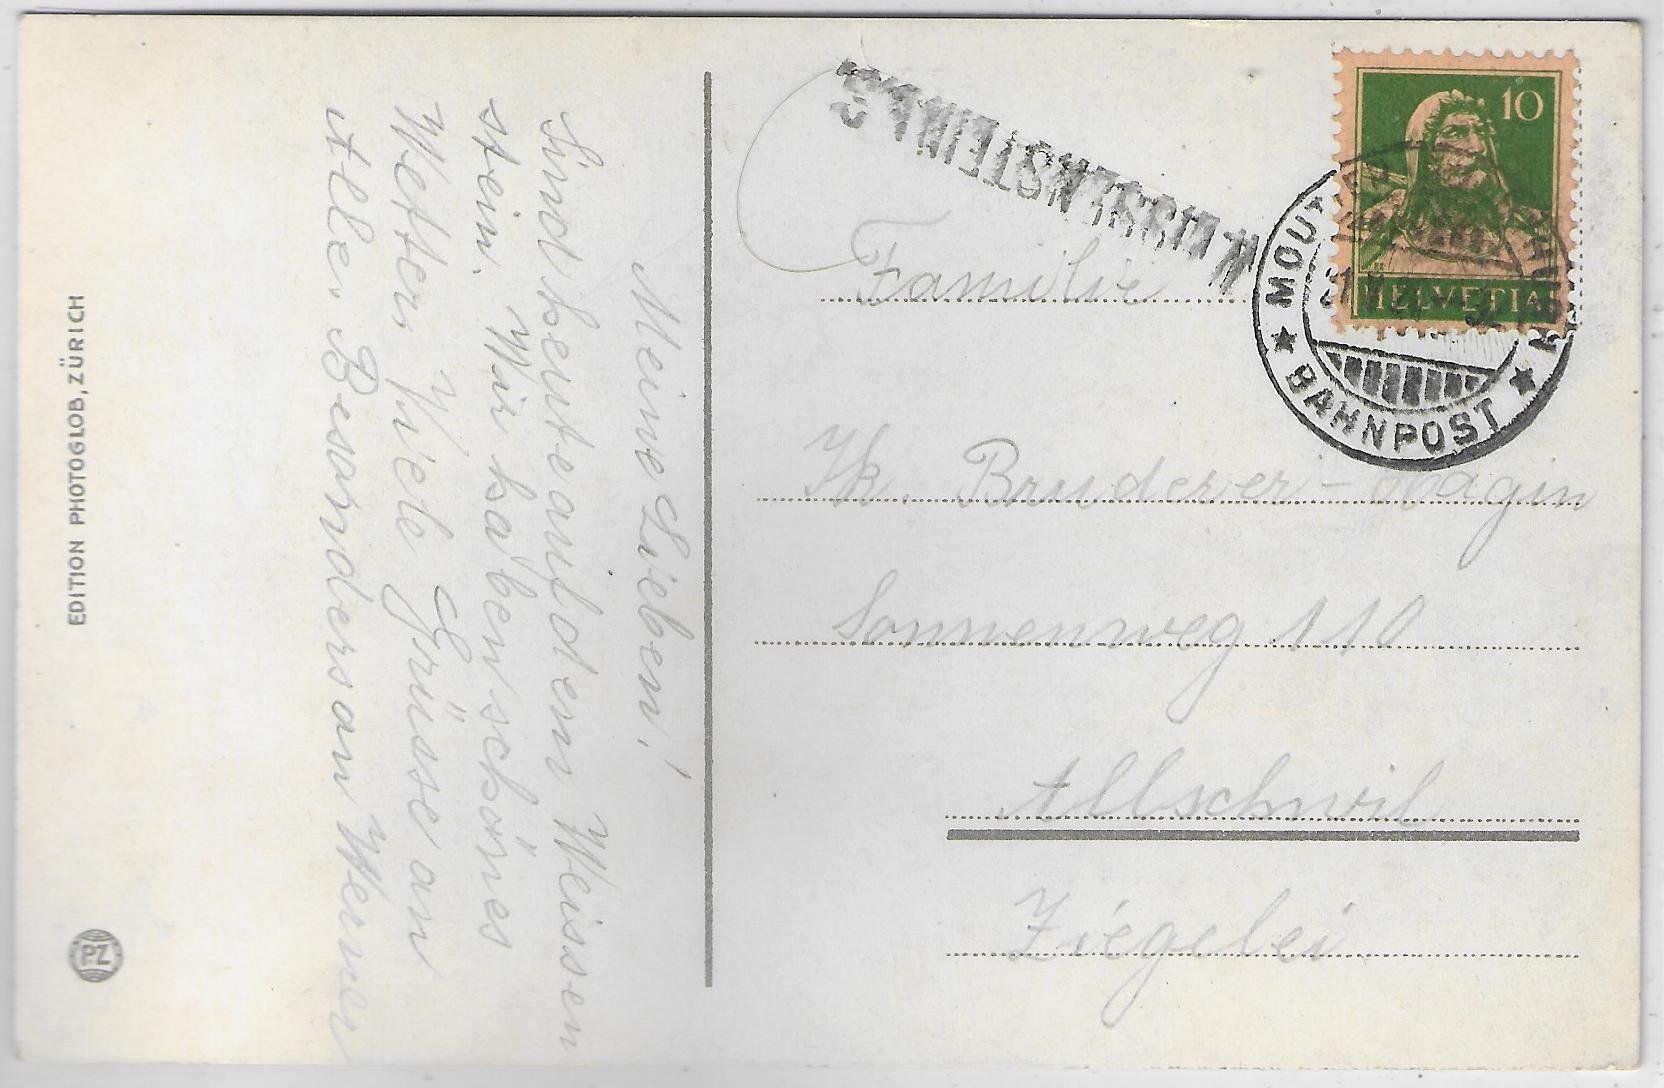 Meine Lieben!
Sind heute auf dem Weissen
stein. Wir haben schönes
Wetter. Viele Grüsse an
Alle. Besonders an Werner
EDITION PHOTOGLOB, ZÜRICH
PZ
WEISSENSTEIN
10
HELVETIA
MOUTIER
BAHNPOST
Familie
Bruderer-Hägin
Sonnenweg 110
Allschwil
Ziegelei